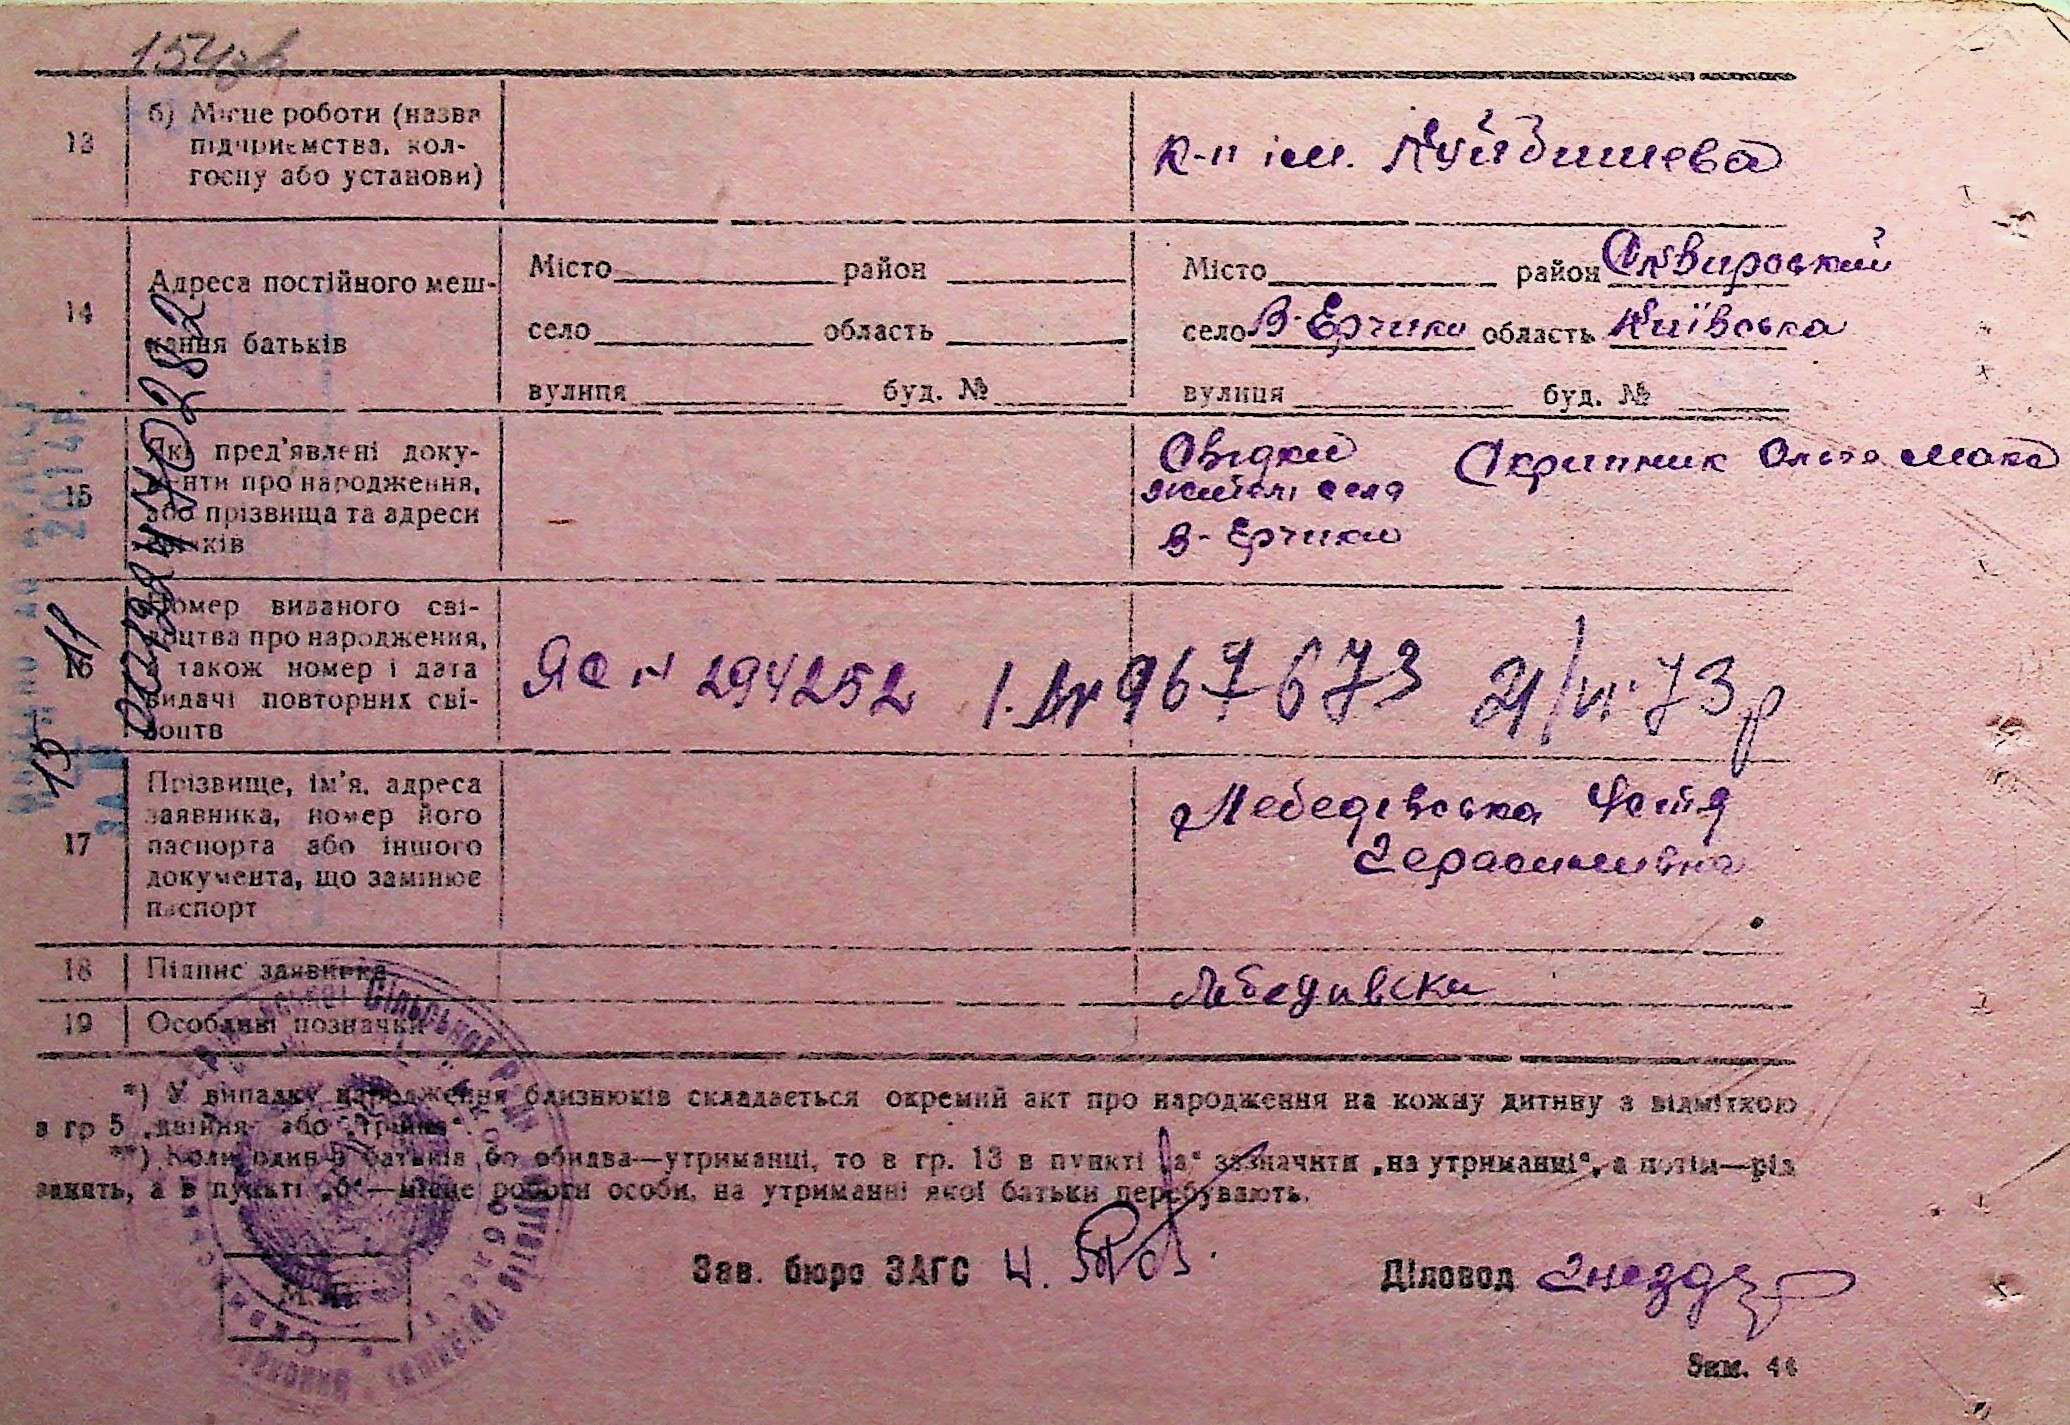 154зв
13
б) Місце роботи (назва
підприємства, кол-
госпу або установи)
к-п ім. Куйбишева
14
Адреса постійного меш-
кання батьків
Місто район
село область
вулиця буд. №
Місто район Сквирський
село В-Єрчики область Київська
вулиця буд. №
15
Які пред'явлені доку-
менти про народження,
або прізвища та адреси
свідків
—
Свідки Скрипник Ольга
жителі села
В-Єрчики
16
Номер виданого сві-
доцтва про народження,
а також номер і дата
видачі повторних сві-
доцтв
ЯС N 294252 967673 21/VI-73р
17
Прізвище, ім'я, адреса
заявника, номер його
паспорта або іншого
документа, що замінює
паспорт
Лебедівська
Герасимівна
18
Підпис заявника
19
Особливі позначки
*) У випадку народження близнюків складається окремий акт про народження на кожну дитину з відміткою
в гр 5 „двійня" або „трійня".
**) Коли один з батьків або обидва—утриманці, то в гр. 13 в пункті „а" зазначити „на утриманні", а потім—рід
занять, а в пункті „б"—місце роботи особи, на утриманні якої батьки перебувають.
Зав. бюро ЗАГС
Діловод
М. П.
Зам. 44
2014р.
15 11